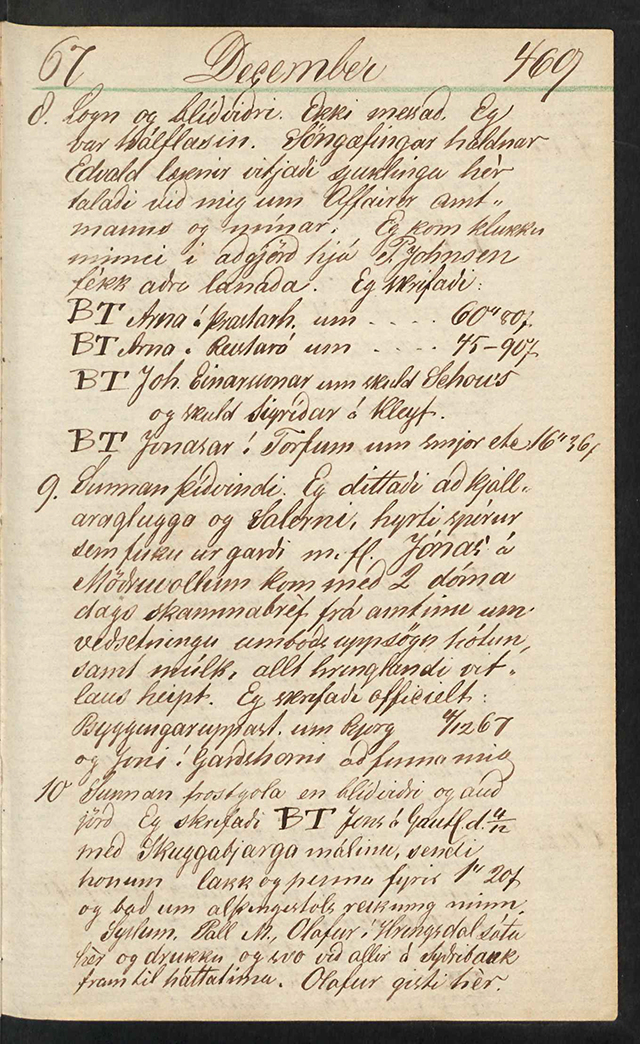 67 December 469
8. Logn og blíðviðri. Ekki messað. Eg
var hálflasin. Söngæfingar haldnar
Edvald læknir vitjaði sjuklinga hér
talaði við mig um Affairer amt-
manns og mínar. Eg kom klukku
minni i aðgjörð hjá P. Johnsen
fékk aðra lanaða. Eg skrifaði:
BT Arna á þrastarh. um . . . . 60"80,
BT Arna á Reistará um . . . . 45-90,
BT Joh. Einarssonar um skuld Schous
og skuld Sigríðar á Kleyf.
BT Jonasar í Torfum um smjor etc 16"36,
9. Sunnan þíðvindi. Eg dittaði að kjall-
araglugga og Salerni, hyrti spírur
sem fuku ur garði m. fl. Jónas á
Möðruvollum kom með 2 dóma
dags skammabréf frá amtinu um
veðsetningu umboðs uppsögn hótun,
samt múlk, allt hringlandi vit-
laus heipt. Eg skrifaði officielt:
Byggingaruppást. um Bjorg 4/12 67
og Joni í Garðshorni að finna mig
10 Sunnan frostgola en blíðviðri og auð
jörð Eg skrifaði BT Jons á Gautl. d. 4/12
með Skuggabjarga málinu, sendi
honum lakk og penna fyrir 1" 20,
og bað um alþingistols reikning minn.
Syslum. Páll M., Olafur í Hringsdal sátu
hér og drukku og svo við allir á Syðribakk
fram til háttatíma. Olafur gisti hér.